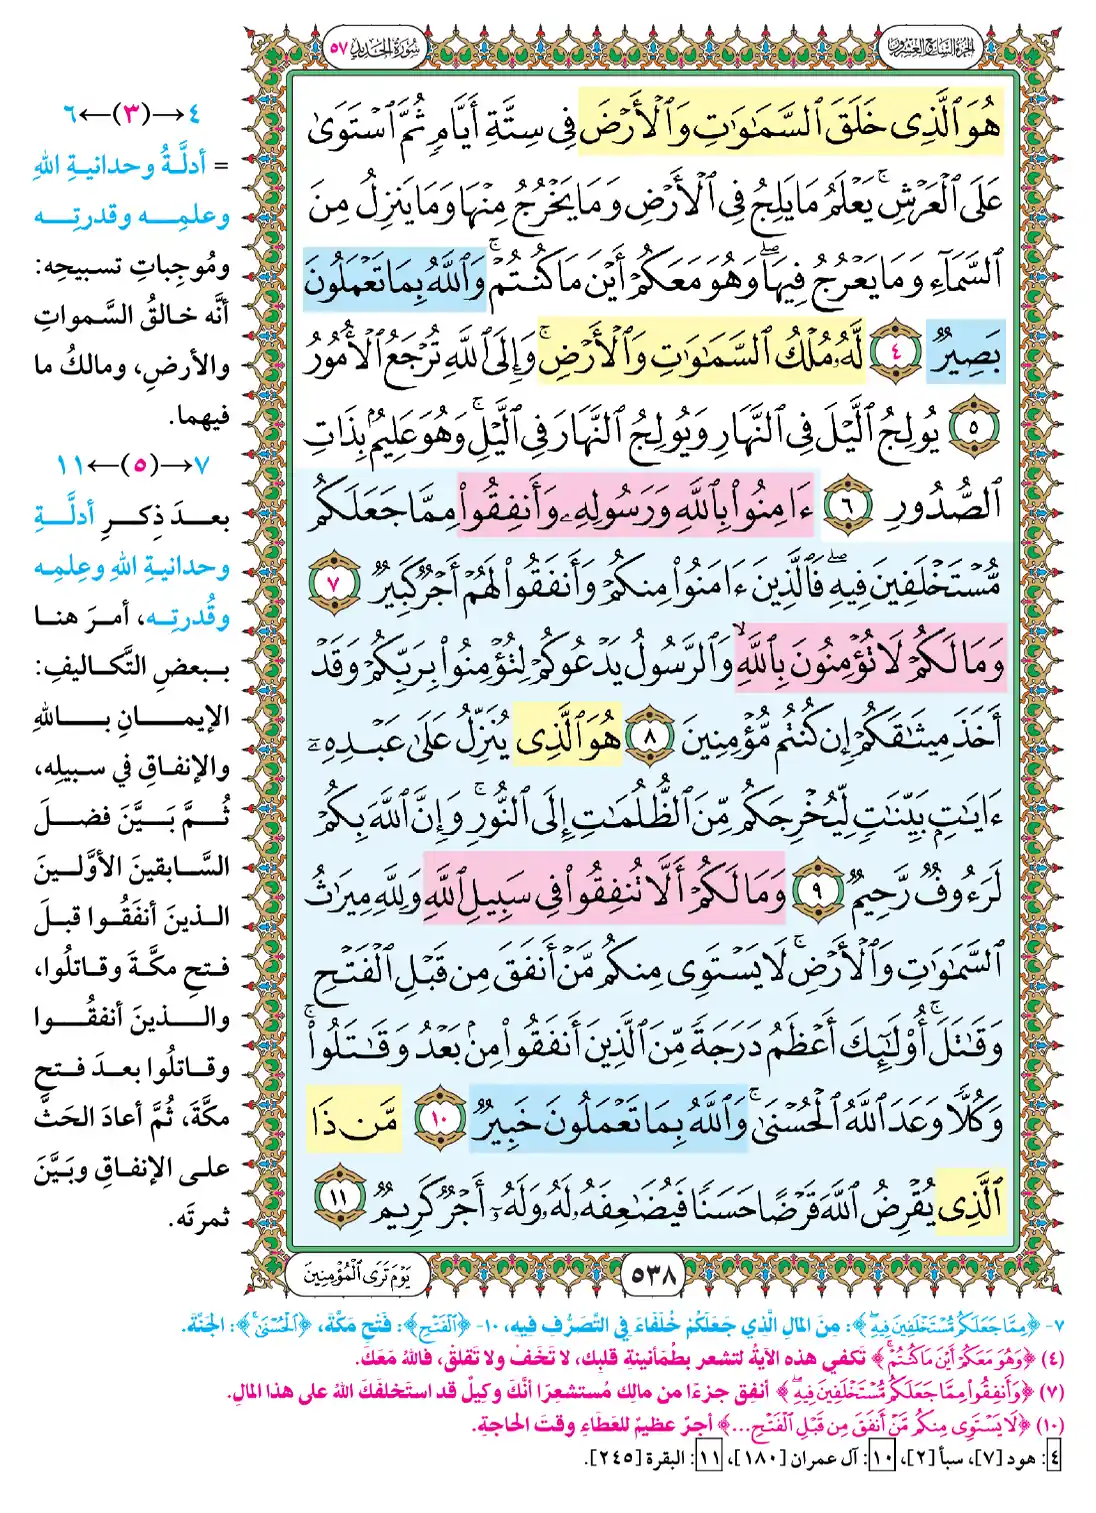 الجزء السابع والعشرون
سُورَةُ الحَدِيدِ ٥٧
هُوَ ٱلَّذِى خَلَقَ ٱلسَّمَٰوَٰتِ وَٱلْأَرْضَ فِى سِتَّةِ أَيَّامٍ ثُمَّ ٱسْتَوَىٰ
عَلَى ٱلْعَرْشِ ۚ يَعْلَمُ مَا يَلِجُ فِى ٱلْأَرْضِ وَمَا يَخْرُجُ مِنْهَا وَمَا يَنزِلُ مِنَ
ٱلسَّمَآءِ وَمَا يَعْرُجُ فِيهَا ۖ وَهُوَ مَعَكُمْ أَيْنَ مَا كُنتُمْ ۚ وَٱللَّهُ بِمَا تَعْمَلُونَ
بَصِيرٌ ٤ لَّهُۥ مُلْكُ ٱلسَّمَٰوَٰتِ وَٱلْأَرْضِ ۚ وَإِلَى ٱللَّهِ تُرْجَعُ ٱلْأُمُورُ
٥ يُولِجُ ٱلَّيْلَ فِى ٱلنَّهَارِ وَيُولِجُ ٱلنَّهَارَ فِى ٱلَّيْلِ ۚ وَهُوَ عَلِيمٌۢ بِذَاتِ
ٱلصُّدُورِ ٦ ءَامِنُوا۟ بِٱللَّهِ وَرَسُولِهِۦ وَأَنفِقُوا۟ مِمَّا جَعَلَكُم
مُّسْتَخْلَفِينَ فِيهِ ۖ فَٱلَّذِينَ ءَامَنُوا۟ مِنكُمْ وَأَنفَقُوا۟ لَهُمْ أَجْرٌ كَبِيرٌ ٧
وَمَا لَكُمْ لَا تُؤْمِنُونَ بِٱللَّهِ ۙ وَٱلرَّسُولُ يَدْعُوكُمْ لِتُؤْمِنُوا۟ بِرَبِّكُمْ وَقَدْ
أَخَذَ مِيثَٰقَكُمْ إِن كُنتُم مُّؤْمِنِينَ ٨ هُوَ ٱلَّذِى يُنَزِّلُ عَلَىٰ عَبْدِهِۦٓ
ءَايَٰتٍۭ بَيِّنَٰتٍ لِّيُخْرِجَكُم مِّنَ ٱلظُّلُمَٰتِ إِلَى ٱلنُّورِ ۚ وَإِنَّ ٱللَّهَ بِكُمْ
لَرَءُوفٌ رَّحِيمٌ ٩ وَمَا لَكُمْ أَلَّا تُنفِقُوا۟ فِى سَبِيلِ ٱللَّهِ وَلِلَّهِ مِيرَٰثُ
ٱلسَّمَٰوَٰتِ وَٱلْأَرْضِ ۚ لَا يَسْتَوِى مِنكُم مَّنْ أَنفَقَ مِن قَبْلِ ٱلْفَتْحِ
وَقَٰتَلَ ۚ أُو۟لَٰٓئِكَ أَعْظَمُ دَرَجَةً مِّنَ ٱلَّذِينَ أَنفَقُوا۟ مِنۢ بَعْدُ وَقَٰتَلُوا۟ ۚ
وَكُلًّا وَعَدَ ٱللَّهُ ٱلْحُسْنَىٰ ۚ وَٱللَّهُ بِمَا تَعْمَلُونَ خَبِيرٌ ١٠ مَّن ذَا
ٱلَّذِى يُقْرِضُ ٱللَّهَ قَرْضًا حَسَنًا فَيُضَٰعِفَهُۥ لَهُۥ وَلَهُۥٓ أَجْرٌ كَرِيمٌ ١١
٥٣٨
يَوْمَ تَرَى ٱلْمُؤْمِنِينَ
٤→(٣)←٦
= أدلَّةُ وحدانيةِ اللهِ
وعلمِه وقدرتِه
ومُوجِباتِ تسبيحِه:
أنَّه خالقُ السَّمواتِ
والأرضِ، ومالكُ ما
فيهما.
٧→(٥)←١١
بعدَ ذِكرِ أدلَّةِ
وحدانيةِ اللهِ وعِلمِه
وقُدرتِه، أمرَ هنا
ببعضِ التَّكاليفِ:
الإيمانِ باللهِ
والإنفاقِ في سبيلِه،
ثُمَّ بَيَّنَ فضلَ
السَّابقينَ الأوَّلينَ
الذينَ أنفَقُوا قبلَ
فتحِ مكَّةَ وقاتلُوا،
والذينَ أنفقُوا
وقاتلُوا بعدَ فتحِ
مكَّةَ، ثُمَّ أعادَ الحَثَّ
على الإنفاقِ وبَيَّنَ
ثمرتَه.
٧- ﴿مِمَّا جَعَلَكُم مُّسْتَخْلَفِينَ فِيهِ﴾: مِنَ المَالِ الَّذِي جَعَلَكُمْ خُلَفَاءَ فِي التَّصَرُّفِ فِيهِ، ١٠- ﴿ٱلْفَتْحِ﴾: فَتْحِ مَكَّةَ، ﴿ٱلْحُسْنَىٰ﴾: الجَنَّةَ.
(٤) ﴿وَهُوَ مَعَكُمْ أَيْنَ مَا كُنتُمْ﴾ تَكفي هذه الآيةُ لتشعر بطُمَأنينةِ قلبِك، لا تَخَفْ ولا تَقلقْ، فاللهُ مَعَكَ.
(٧) ﴿وَأَنفِقُوا۟ مِمَّا جَعَلَكُم مُّسْتَخْلَفِينَ فِيهِ﴾ أنفِق جزءًا من مالِك مُستشعِرًا أنَّكَ وكيلٌ قد استَخلفَكَ اللهُ على هذا المالِ.
(١٠) ﴿لَا يَسْتَوِى مِنكُم مَّنْ أَنفَقَ مِن قَبْلِ ٱلْفَتْحِ...﴾ أجرٌ عظيمٌ للعَطَاءِ وقتَ الحاجةِ.
٤: هود [٧]، سبأ [٢]، ١٠: آل عمران [١٨٠]، ١١: البقرة [٢٤٥].